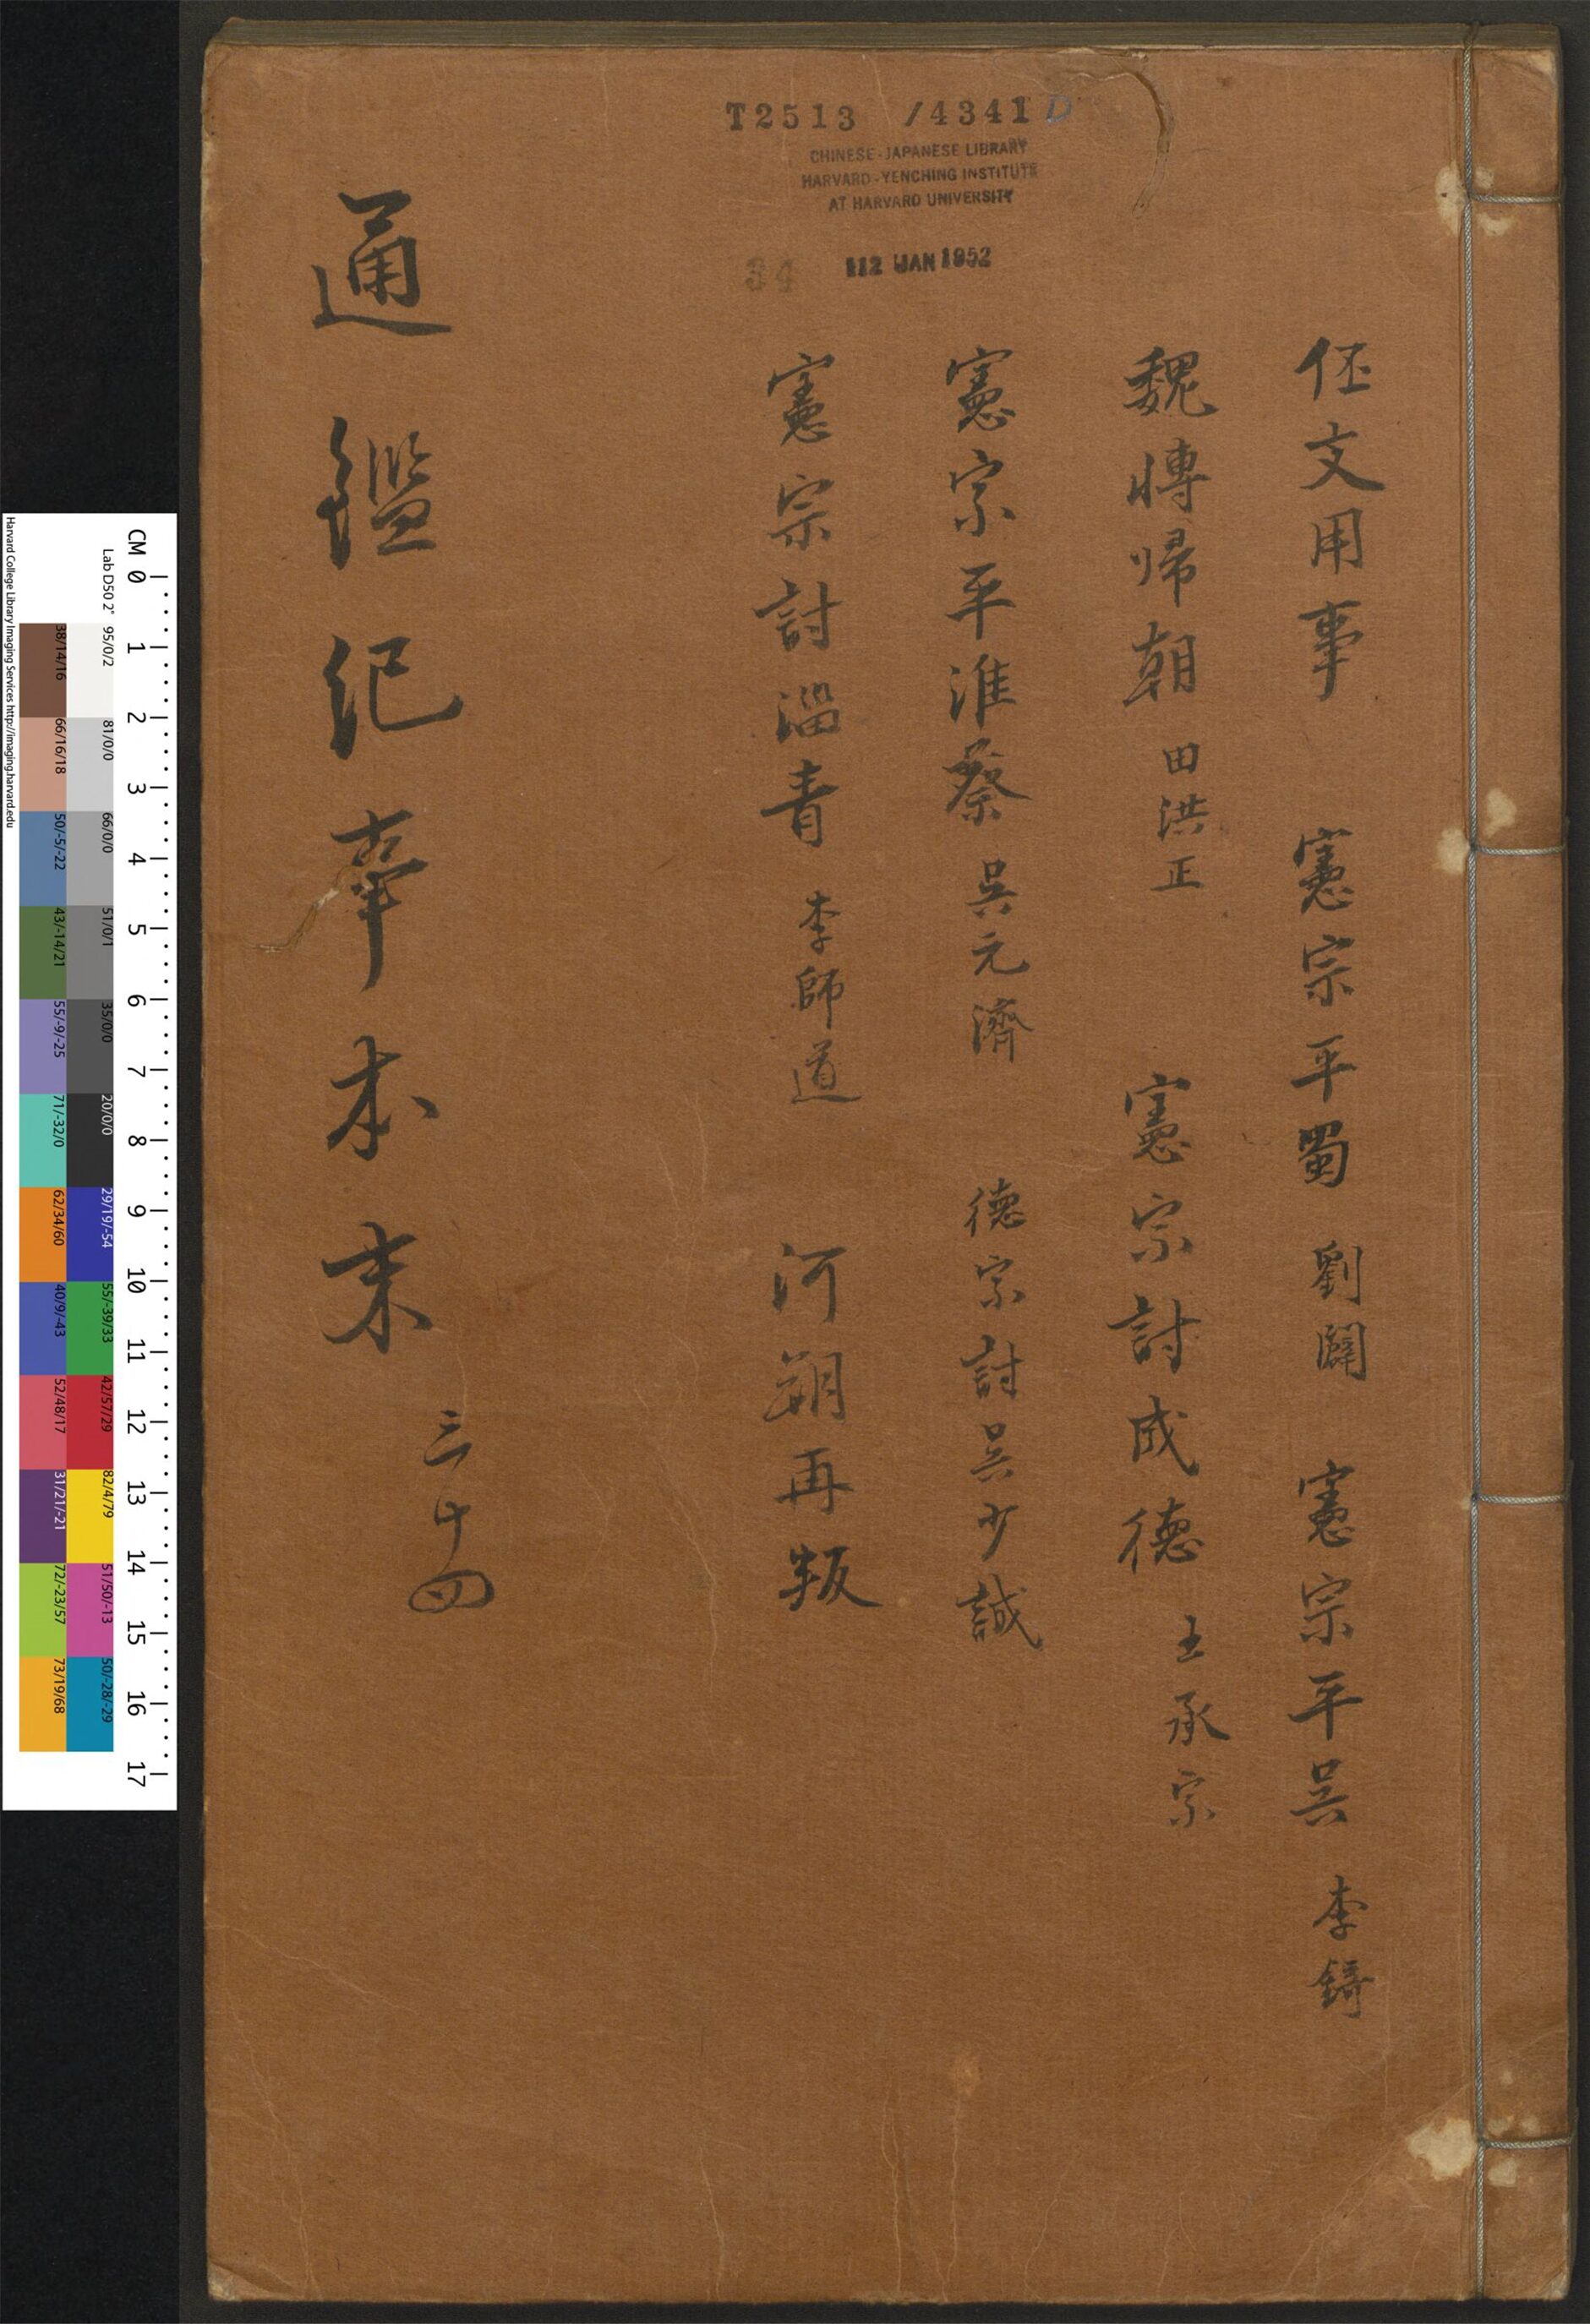 T2513 /4341 D
CHINESE-JAPANESE LIBRARY
HARVARD-YENCHING INSTITUTE
AT HARVARD UNIVERSITY
34 12 JAN 1952
伾文用事 憲宗平蜀 劉闢 憲宗平吳 李錡
魏博歸朝 田洪正 憲宗討成德 王承宗
憲宗平淮蔡 吳元濟 德宗討吳少誠
憲宗討淄青 李師道 河朔再叛
通鑑紀事本末 三十四
CM 0 1 2 3 4 5 6 7 8 9 10 11 12 13 14 15 16 17
Lab D50 2° 95/0/2 81/0/0 66/0/0 51/0/1 35/0/0 20/0/0 29/19/-54 55/-39/33 42/57/29 82/4/79 51/50/-13 50/-28/-29
38/14/16 66/16/18 50/-5/-22 43/-14/21 55/9/-25 71/-32/0 62/34/60 40/9/-43 52/48/17 31/21/-21 72/-23/57 73/19/68
Harvard College Library Imaging Services http://imaging.harvard.edu